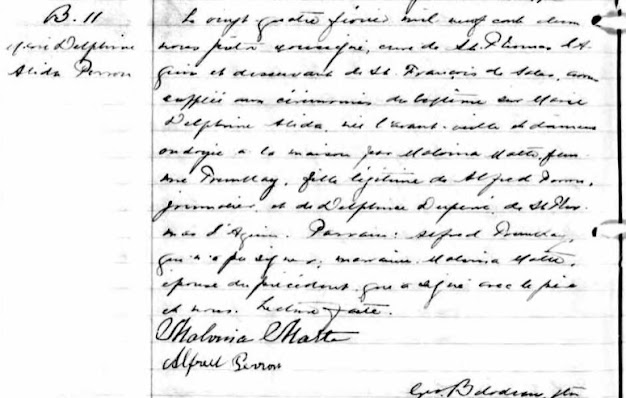 B. 11
Marie Delphine
Alida Perron
Le vingt quatre février mil neuf cent
nous prêtre soussigné, curé de St. Thomas d'A
quin et desservant de St. François de Sales, avons
suppléé aux cérémonies du baptême sur Marie
Delphine Alida, née l'avant-veille et dûment
ondoyée à la maison par Malvina Matte, fem
me Tremblay, fille légitime de Alfred Perron,
journalier, et de Delphine Dupéré, de St Tho
mas d'Aquin. Parrain: Alfred Tremblay,
qui n'a pu signer; marraine Malvina Matte,
épouse du précédent qui a signé avec le père
et nous. Lecture faite.
Malvina Matte
Alfred Perron
Geo. Bilodeau, ptre